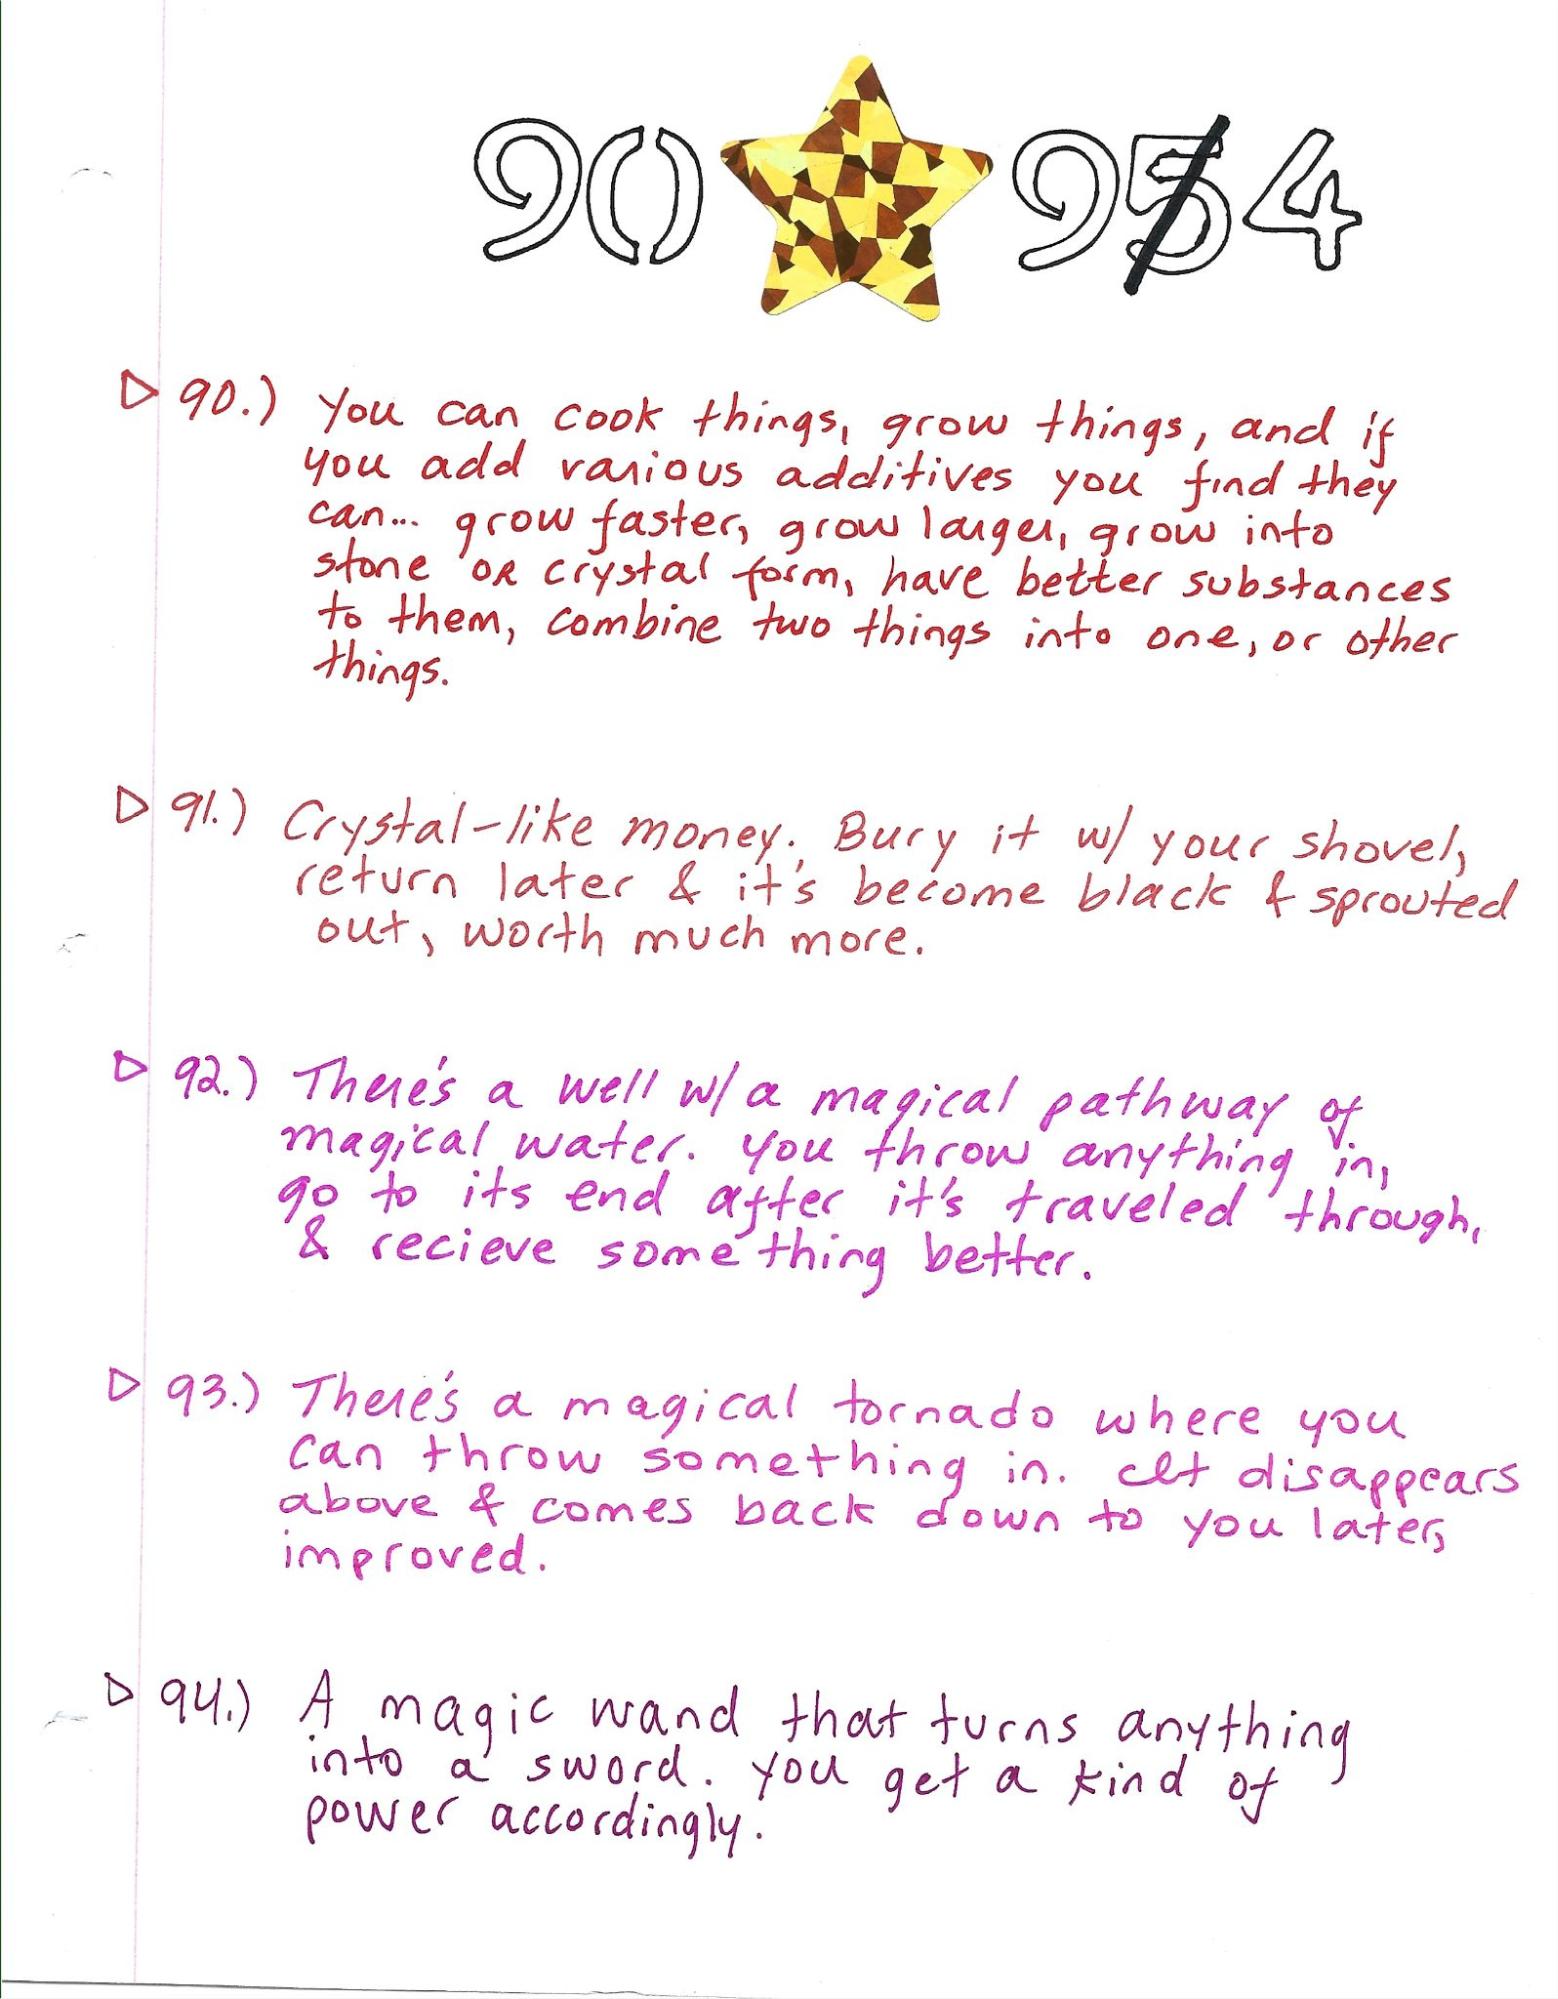 90 954
90.) You can cook things, grow things, and if
you add various additives you find they
can... grow faster, grow larger, grow into
stone OR crystal form, have better substances
to them, combine two things into one, or other
things.
91.) Crystal-like money. Bury it w/ your shovel,
return later & it's become black & sprouted
out, worth much more.
92.) There's a well w/ a magical pathway of
magical water. You throw anything in,
go to its end after it's traveled through,
& recieve something better.
93.) There's a magical tornado where you
can throw something in. It disappears
above & comes back down to you later,
improved.
94.) A magic wand that turns anything
into a sword. You get a kind of
power accordingly.